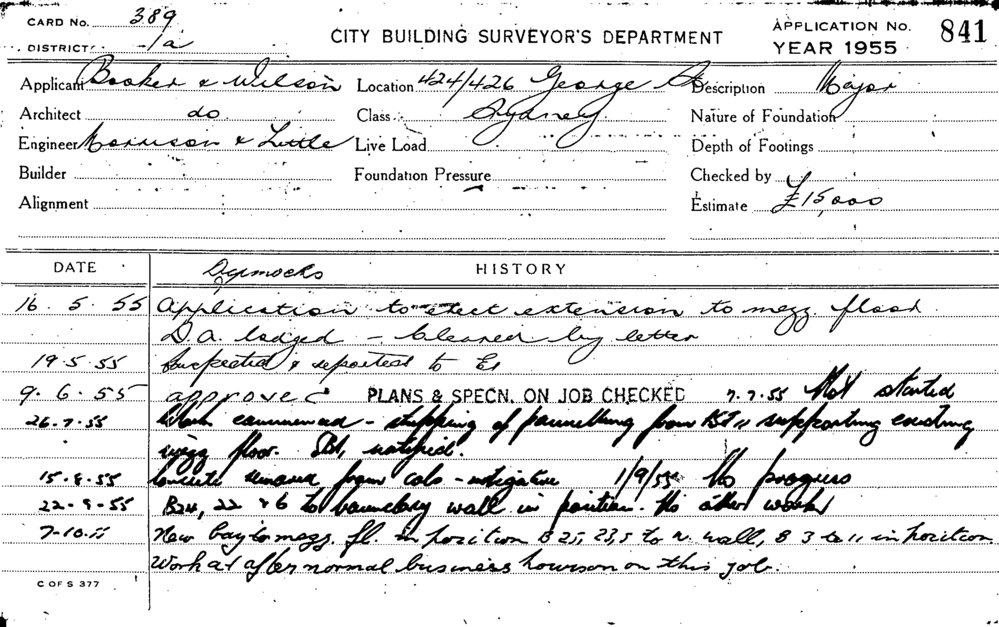 CARD No. 389
DISTRICT 1a
CITY BUILDING SURVEYOR'S DEPARTMENT
APPLICATION No. 841
YEAR 1955
Applicant Booker & Wilson Location 424/426 George St Description Major
Architect do Class Sydney Nature of Foundation
Engineer Morrison & Little Live Load Depth of Footings
Builder Foundation Pressure Checked by
Alignment Estimate £15,000
DATE HISTORY
Dymocks
16.5.55 Application to erect extension to mezz. floor
D.A. lodged - cleared by letter
19.5.55 Inspected & reported to
9.6.55 approved PLANS & SPECN. ON JOB CHECKED 7.7.55 Not started
26.7.55 Work commenced - stripping of panelling from supporting existing
mezz floor.
15.8.55 Concrete from cols - 1/9/55 No progress
22.9.55 B24, 22 & 6 to boundary wall in position. No other work
7-10-55 New bay to mezz. fl. in position B 25, 23, 5 to n. wall, B 3 to 11 in position.
Work at after normal business hours on this job.
C OF S 377